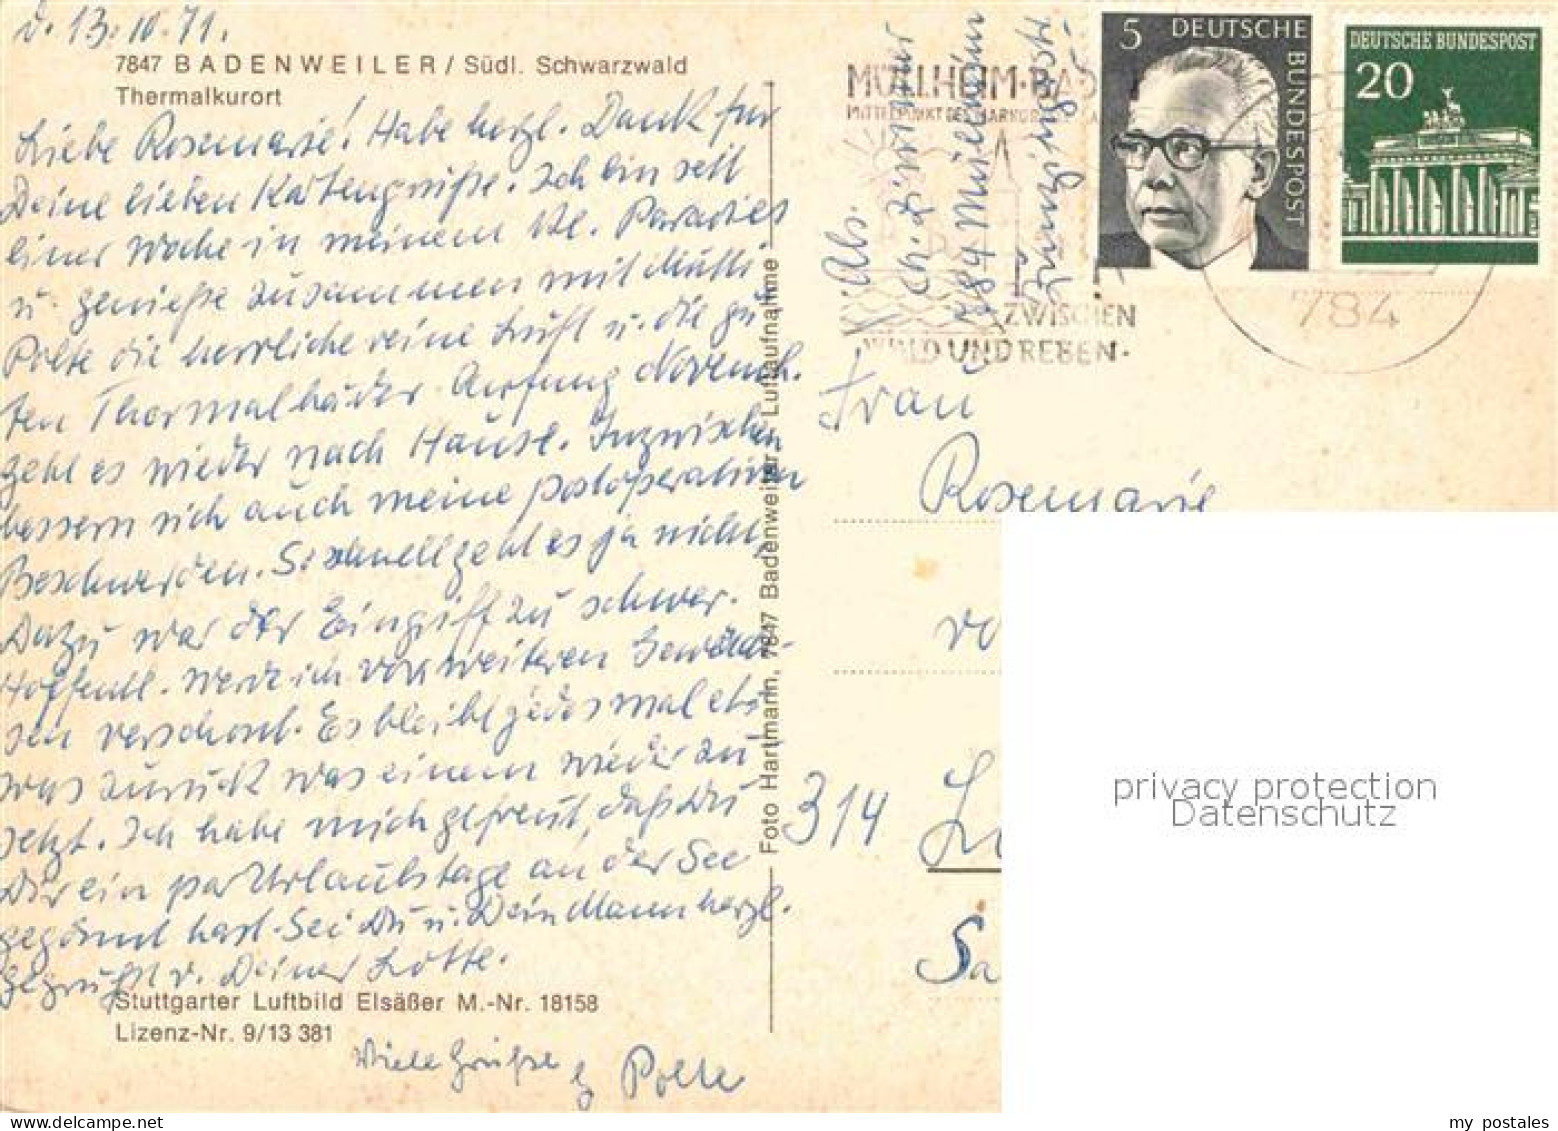 d. 13.10.71.
7847 BADENWEILER / Südl. Schwarzwald
Thermalkurort
Liebe Rosemarie! Habe herzl. Dank für
Deine lieben Kartengrüße. Ich bin seit
einer Woche in meinem kl. Paradies
u. genieße zusammen mit Mutti
Polte die herrliche reine Luft u. die gu
ten Thermalbäder. Anfang Novemb.
geht es wieder nach Hause. Inzwischen
bessern sich auch meine postoperativen
Beschwerden. So schnell geht es ja nicht,
Dazu war der Eingriff zu schwer.
Hoffentl. werde ich von weiteren
sen verschont. Es bleibt jedesmal et-
was zurück was einem wieder zu
setzt. Ich habe mich gefreut, daß Du
Dir ein paar Urlaubstage an der See
gegönnt hast. Sei Du u. Dein Mann herzl.
gegrüßt v. Deiner Lotte.
Stuttgarter Luftbild Elsäßer M.-Nr. 18158
Lizenz-Nr. 9/13 381
Viele Grüße
Polte
Foto Hartmann, 7847 Badenweiler - Luftaufnahme
Abs.
784 Müllheim
MÜLLHEIM·BAD
ZWISCHEN
WALD UND REBEN·
784
5 DEUTSCHE BUNDESPOST
DEUTSCHE BUNDESPOST
20
Frau
Rosemarie
vo
314 Lü
Sa
privacy protection
Datenschutz
my postales